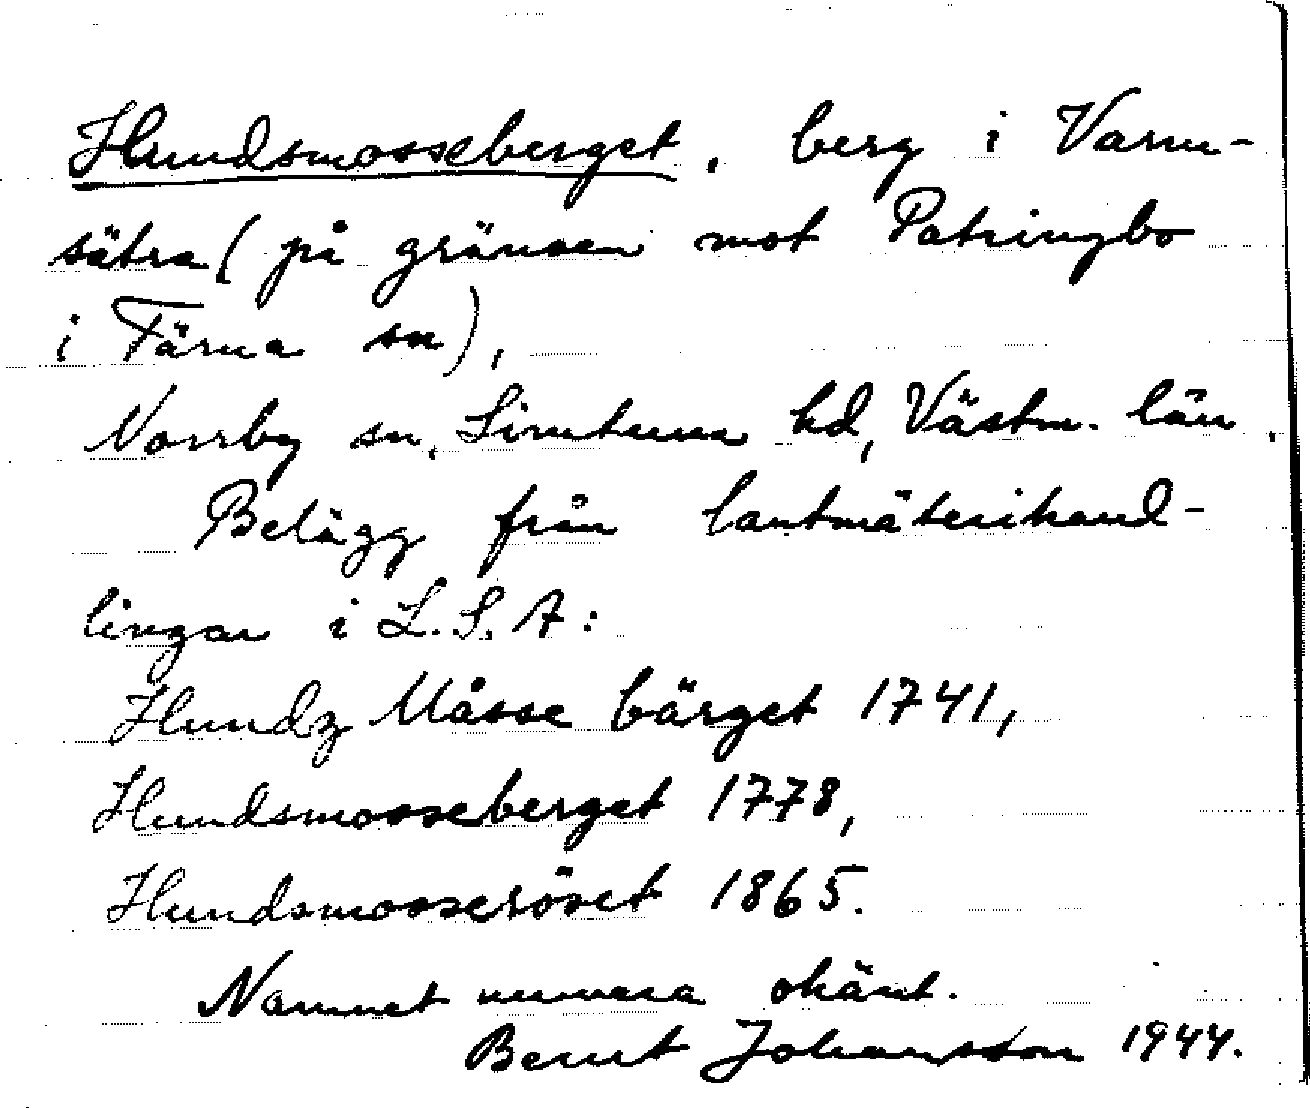 Hundsmosseberget, berg i Varm-
sätra (på gränsen mot Patringbo
i Färna sn),
Norrby sn, Simtuna hd, Västm. län.
Belägg från lantmäterihand-
lingar i L.S.A:
Hundz Måsse bärget 1741,
Hundsmosseberget 1778,
Hundsmosseröset 1865.
Namnet numera okänt.
Bernt Johansson 1944.